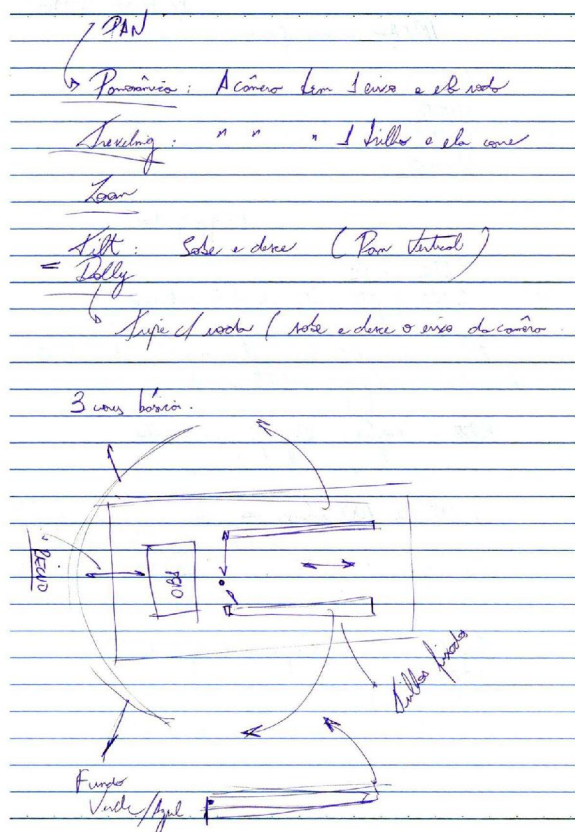 PAN
Panorâmica: A câmera tem 1 eixo e ela roda
Traveling: " " " 1 trilho e ela corre
Zoom
Tilt: Sobe e desce (Pan Vertical)
= Dolly
Tripé c/ roda ( sobe e desce o eixo da câmera
3 cores básicas.
RECUO
OBJ
Trilhos fixados
Fundo
Verde/Azul